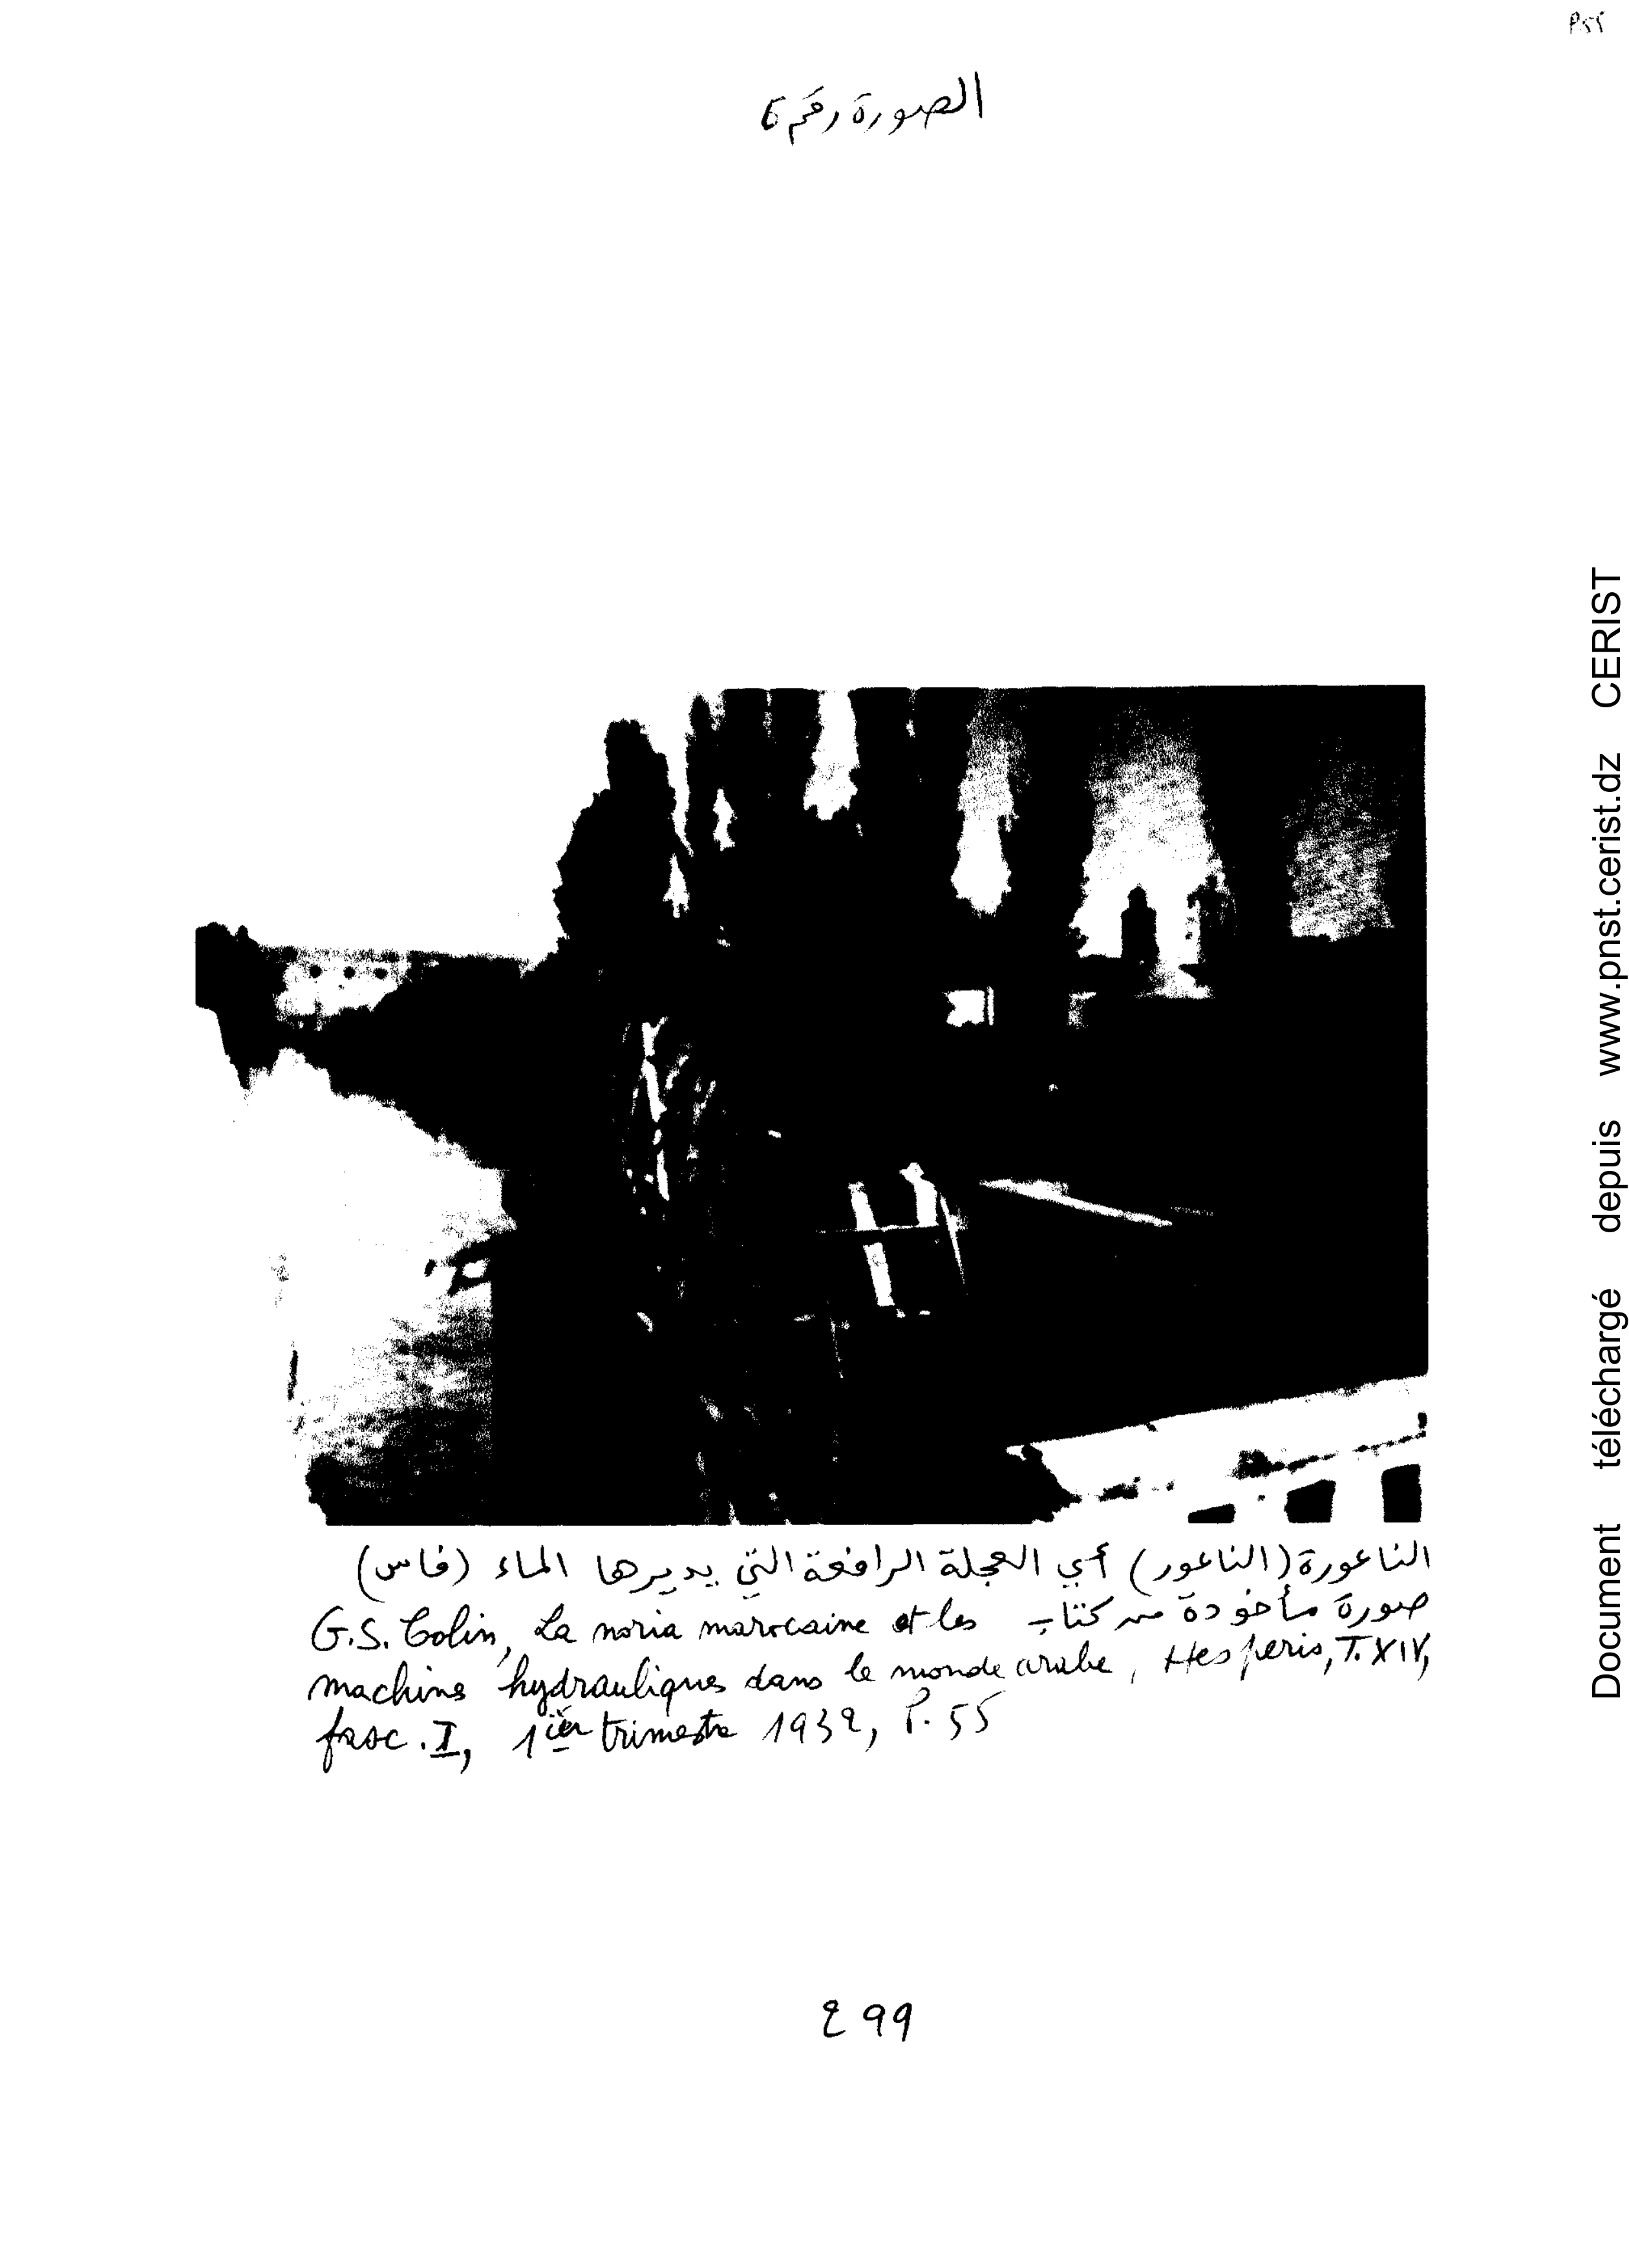 P.55
الصورة رقم 6
الناعورة (الناعور) أي العجلة الرافعة التي يديرها الماء (فاس)
صورة مأخوذة من كتاب G.S. Colin, La noria marocaine et les
machines hydrauliques dans le monde arabe, Hesperis, T. XIV,
fasc. I, 1ier trimestre 1932, P. 55
299
Document téléchargé depuis www.pnst.cerist.dz CERIST